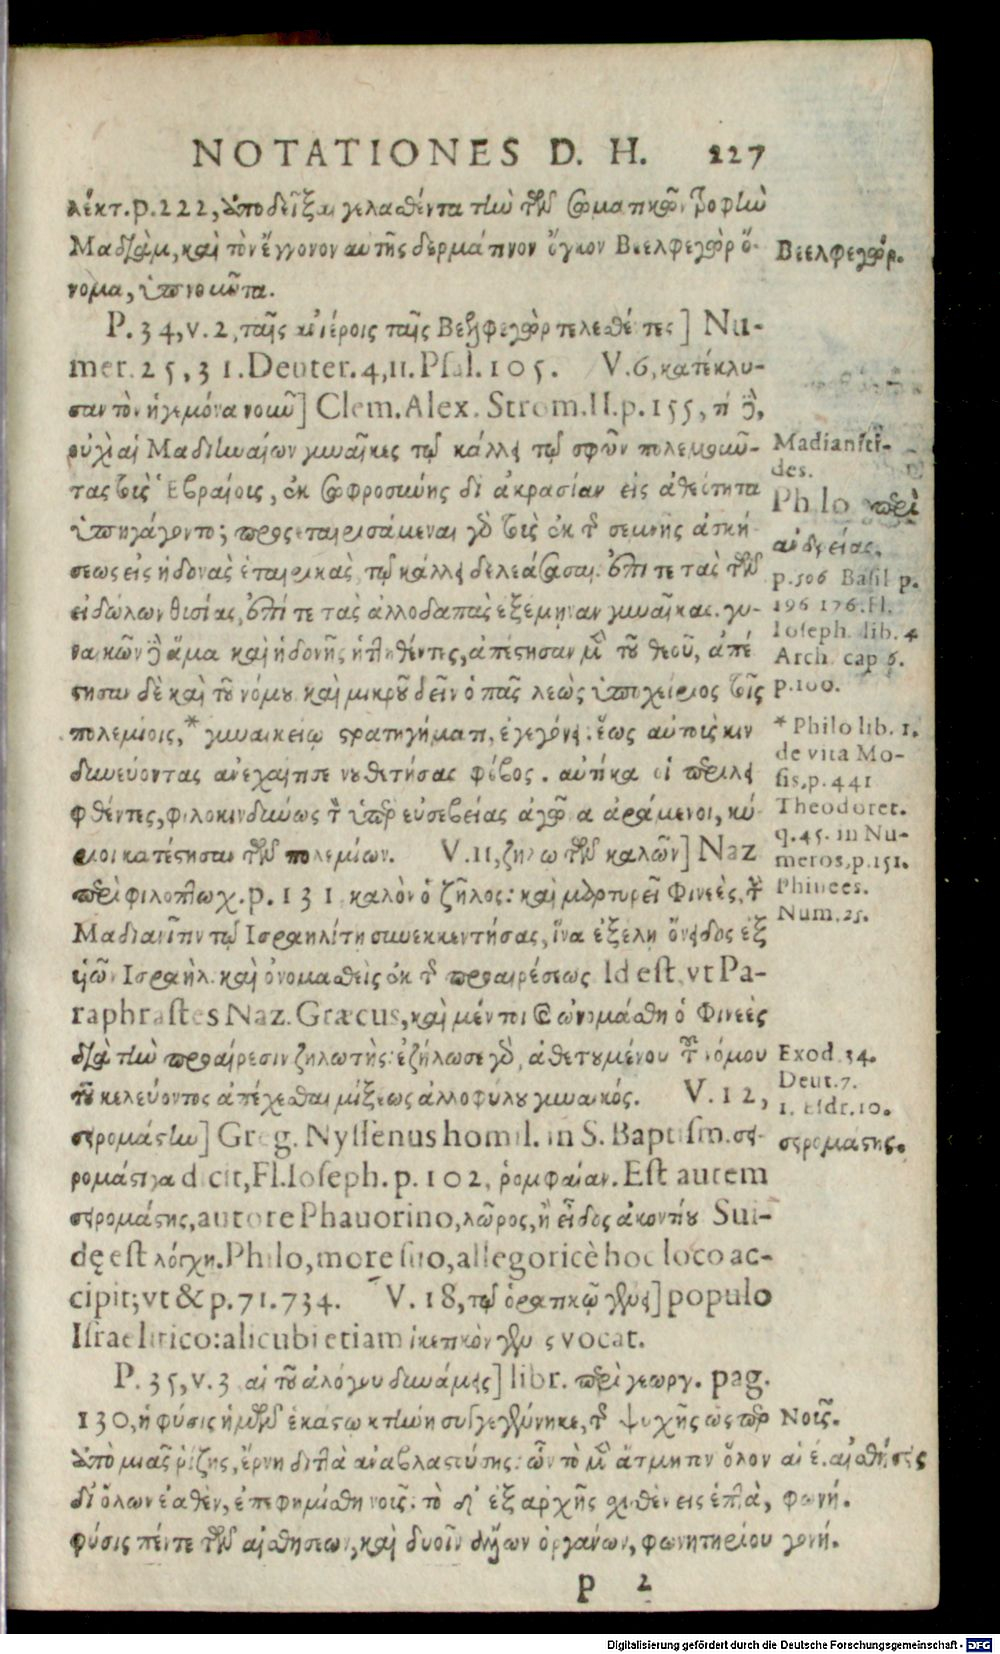 NOTATIONES D. H. 227
λέκτ. p. 222, ὑποδεῖξαι γελαθέντα τὴν τῶν σωματικῶν τροφὴν
Μαδιὰμ, καὶ τὸν ἔγγονον αὐτῆς δερμάτινον ὄγκον Βεελφεγὼρ ὄ-
νομα, ὑπνοῦντα.
P. 34, v. 2, ταῖς ἀνιέροις ταῖς Βεελφεγὼρ τελεθέντες] Nu-
mer. 25, 31. Deuter. 4, 11. Psal. 105. V. 6, κατέκλυ-
σαν τὸν ἡγεμόνα νοῦν] Clem. Alex. Strom. II. p. 155, τί δὲ,
οὐχὶ αἱ Μαδιηναίων γυναῖκες τῷ κάλλει τῷ σφῶν πολεμοῦν-
τας τοῖς Ἑβραίοις, ἐκ σωφροσύνης δι ἀκρασίαν εἰς ἀθεότητα
ὑπηγάγοντο; προσεταιρισάμεναι γὸ τοῖς ἐκ τῆς σεμνῆς ἀσκή-
σεως εἰς ἡδονὰς ἑταιρικὰς τῷ κάλλει δελεάσασαι. ἐπί τε τὰς τῶν
εἰδώλων θυσίας, ἐπί τε τὰς ἀλλοδαπὰς ἐξέμηναν γυναῖκας. γυ-
ναικῶν δὲ ἅμα καὶ ἡδονῆς ἡττηθέντες, ἀπέστησαν μὲν τοῦ θεοῦ, ἀπέ
στησαν δὲ καὶ τοῦ νόμου καὶ μικροῦ δεῖν ὁ πᾶς λεὼς ὑποχείριος τοῖς
πολεμίοις, * γυναικείῳ στρατηγήματι, ἐγεγόνει. ἕως αὐτοὺς κιν
δυνεύοντας ἀνεχαίτισε νουθετήσας φόβος. αὐτίκα οἱ περιλει
φθέντες, φιλοκινδύνως τὸν ὑπὲρ εὐσεβείας ἀγῶνα ἀράμενοι, κύ
ριοι κατέστησαν τῶν πολεμίων. V. 11, ζήλω τῶν καλῶν] Naz
περὶ φιλοπτωχ. p. 131 καλὸν ὁ ζῆλος: καὶ μαρτυρεῖ Φινεὲς, τὴν
Μαδιανῖτιν τῷ Ισραηλίτῃ συνεκκεντήσας, ἵνα ἐξέλῃ ὄνειδος ἐξ
υἱῶν Ισραὴλ. καὶ ὀνομαθεὶς ἐκ τῆς προαιρέσεως Id est, vt Pa-
raphrastes Naz. Græcus, καὶ μέντοι καὶ ὠνομάσθη ὁ Φινεὲς
διὰ τὴν προαίρεσιν ζηλωτής: ἐζήλωσε γὸ, ἀθετουμένου τοῦ νόμου
τοῦ κελεύοντος ἀπέχεσθαι μίξεως ἀλλοφύλου γυναικός. V. 12,
σειρομάστην] Greg. Nyssenus homil. in S. Baptism. σει-
ρομάστρα dicit, Fl. Ioseph. p. 102, ῥομφαίαν. Est autem
σειρομάστης, autore Phauorino, λῶρος, ἢ εἶδος ἀκοντίου Sui-
dę est λόγχη. Philo, more suo, allegoricè hoc loco ac-
cipit; vt & p. 71. 734. V. 18, τῷ ὁρατικῷ γένει] populo
Israelitico: alicubi etiam ἱκετικὸν γένος vocat.
P. 35, v. 3 αἱ τοῦ ἀλόγου δυνάμεις] libr. περὶ γεωργ. pag.
130, ἡ φύσις ἡμῶν ἑκάστῳ κτήνη συγγεγέννηκε, τῆς ψυχῆς ὥσπερ
ὑπὸ μιᾶς ῥίζης, ἔρνη διττὰ ἀναβλαστούσης: ὧν τὸ μὲν ἄτμητον ὅλον
δι ὅλων ἐαθὲν, ἐπεφημίσθη νοῦς. τὸ δ᾽ ἐξ ἀρχῆς σχισθὲν εἰς ἑπτὰ,
φύσις πέντε τῶν αἰσθήσεων, καὶ δυοῖν ἄλλων ὀργάνων, φωνητηρίου
Νοῦς.
αἱ ε. αἰσθήσεις
φωνή.
γονή.
p 2
Βεελφεγώρ.
Madianiti-
des.
Philo περὶ
ἀνδρείας.
p. 506 Basil p.
196 176. Fl.
Ioseph. lib. 4
Arch. cap 6.
p. 100.
* Philo lib. 1.
de vita Mo-
sis, p. 441
Theodoret.
q. 45. in Nu-
meros, p. 151.
Phinees.
Num. 25.
Exod. 34.
Deut. 7.
1. Esdr. 10.
σειρομάστης.
Digitalisierung gefördert durch die Deutsche Forschungsgemeinschaft - DFG